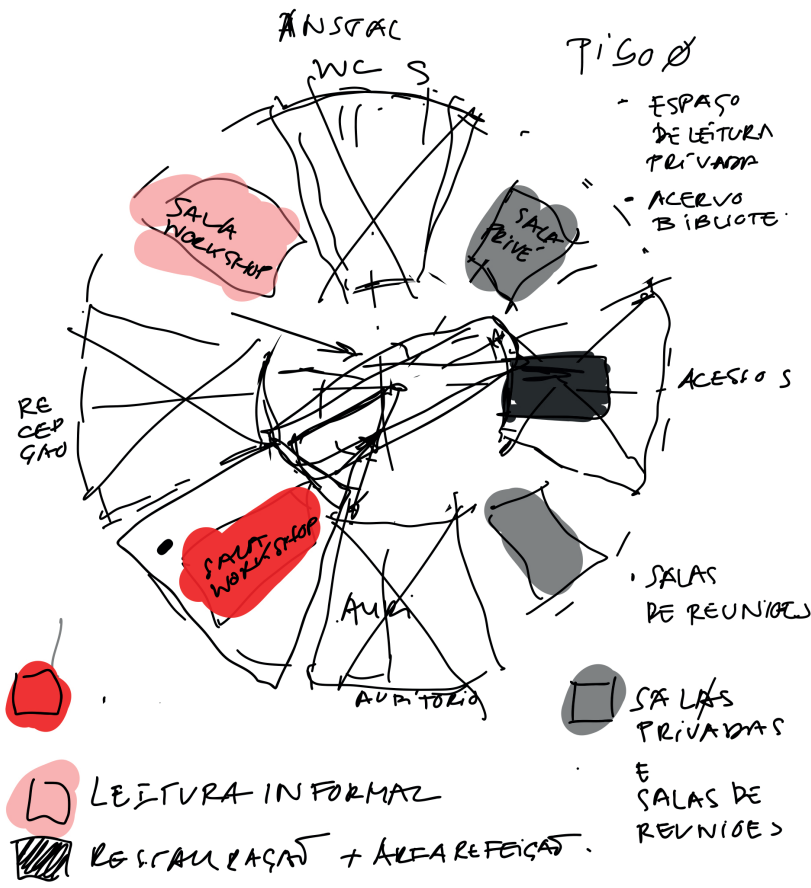 INSTAL
WC S
PISO Ø
- ESPAÇO
DE LEITURA
PRIVADA
• ACERVO
BIBLIOTE.
SALA
WORKSHOP
SALA
PRIVÉ
ACESSO S
RE
CEP
ÇÃO
SALA
WORKSHOP
AUDI
AUDITÓRIO
• SALAS
DE REUNIOES
SALAS
PRIVADAS
E
SALAS DE
REUNIOES
LEITURA INFORMAL
RESTAURAÇAO + AREA REFEIÇAO.